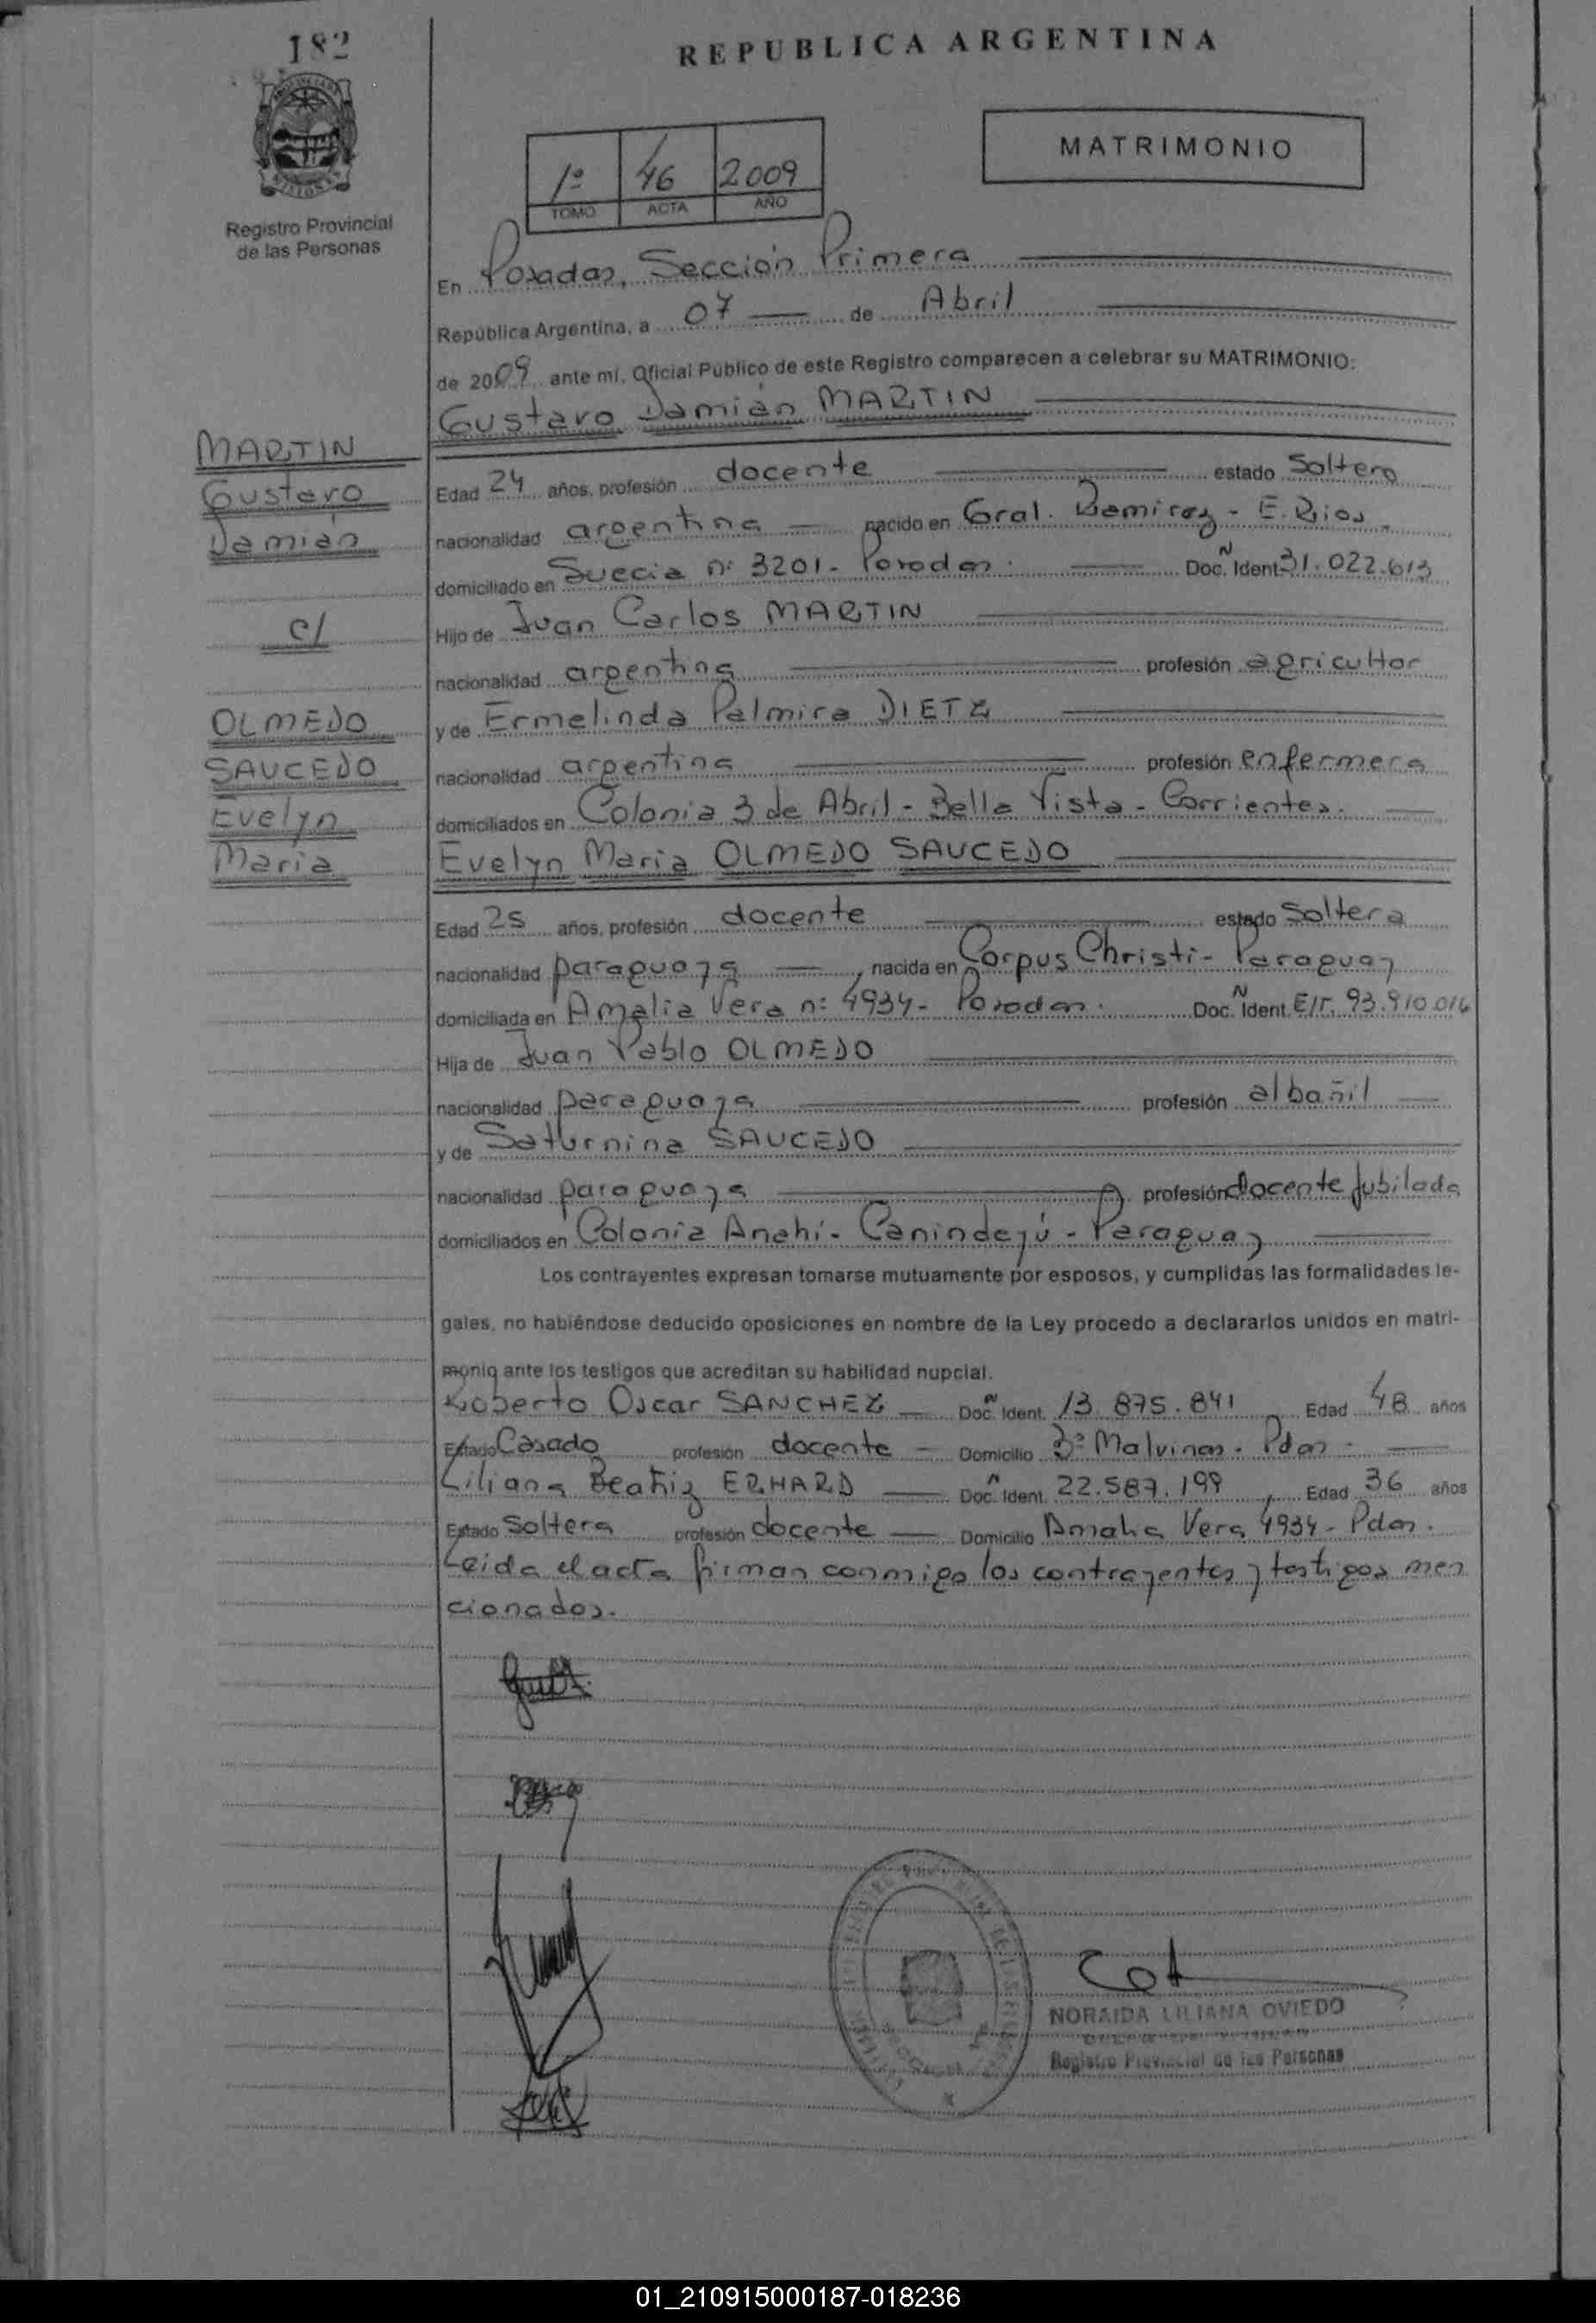 182
REPUBLICA ARGENTINA
MATRIMONIO
1º 46 2009
TOMO ACTA AÑO
Registro Provincial
de las Personas
En Posadas, Sección Primera
República Argentina, a 07 de Abril
de 2009 ante mí, Oficial Público de este Registro comparecen a celebrar su MATRIMONIO:
Gustavo Damián MARTIN
MARTIN
Gustavo
Damián
c/
OLMEDO
SAUCEDO
Evelyn
Maria
Edad 24 años, profesión docente estado Soltero
nacionalidad argentina nacido en Gral. Ramirez - E. Rios
domiciliado en Suecia nº 3201 - Posadas. Doc. N Ident 31.022.613
Hijo de Juan Carlos MARTIN
nacionalidad argentina profesión agricultor
y de Ermelinda Palmira DIETZ
nacionalidad argentina profesión enfermera
domiciliados en Colonia 3 de Abril - Bella Vista - Corrientes.
Evelyn Maria OLMEDO SAUCEDO
Edad 25 años, profesión docente estado Soltera
nacionalidad paraguaya, nacida en Corpus Christi - Paraguay
domiciliada en Amalia Vera nº 4934 - Posadas. Doc. N Ident E/T. 93.910.016
Hija de Juan Pablo OLMEDO
nacionalidad paraguaya profesión albañil
y de Saturnina SAUCEDO
nacionalidad paraguaya profesión docente jubilada
domiciliados en Colonia Anahí - Canindeyú - Paraguay
Los contrayentes expresan tomarse mutuamente por esposos, y cumplidas las formalidades le-
gales, no habiéndose deducido oposiciones en nombre de la Ley procedo a declararlos unidos en matri-
monio ante los testigos que acreditan su habilidad nupcial.
Roberto Oscar SANCHEZ Doc. N Ident. 13.875.841 Edad 48 años
Estado Casado profesión docente Domicilio Bº Malvinas. Pdas.
Liliana Beatriz ERHARD Doc. N Ident. 22.587.199, Edad 36 años
Estado Soltera profesión docente Domicilio Amalia Vera 4934 - Pdas.
Leida el acta firman conmigo los contrayentes y testigos men
cionados.
NORAIDA LILIANA OVIEDO
Registro Provincial de las Personas
01_210915000187-018236